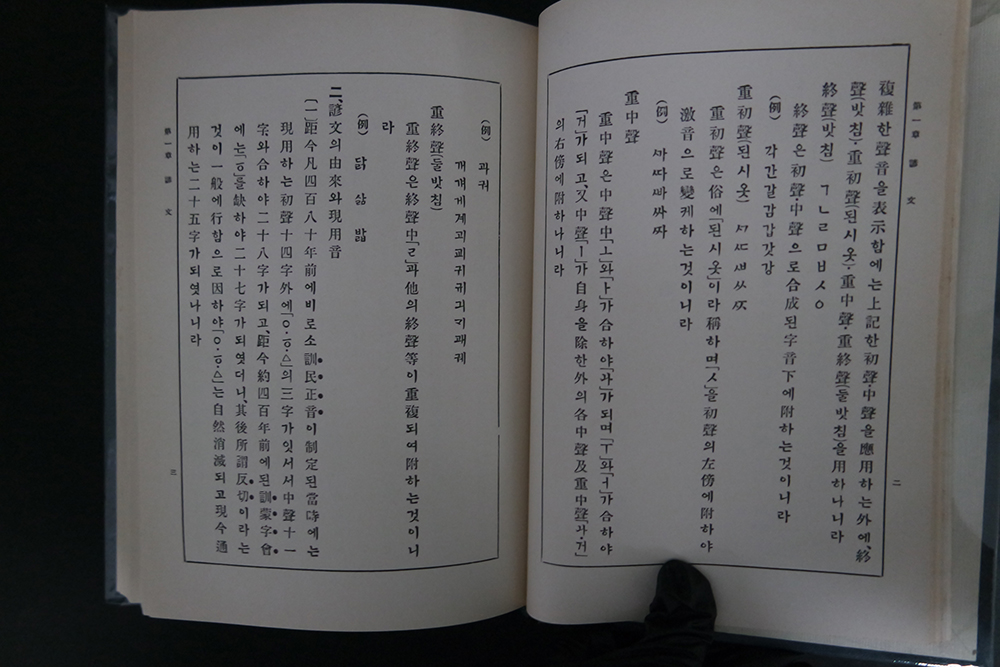 第一章 諺文
二
複雜한聲音을表示함에는上記한初聲·中聲을應用하는外에、終
聲(밧침)·重初聲(된시옷)·重中聲·重終聲(둘밧침)을用하나니라
終聲(밧침) ㄱㄴㄹㅁㅂㅅㆁ
終聲은初聲·中聲으로合成된字音下에附하는것이니라
(例) 각간갈감갑갓강
重初聲(된시옷) ㅺㅼㅽㅆㅾ
重初聲은俗에「된시옷」이라稱하며「ㅅ」을初聲의左傍에附하야
激音으로變케하는것이니라
(例) ᄭᅡᄯᅡᄲᅡ싸ᄶᅡ
重中聲
重中聲은中聲中「ㅗ」와「ㅏ」가合하야「ㅘ」가되며「ㅜ」와「ㅓ」가合하야
「ㅝ」가되고、又中聲「ㅣ」가自身을除한外의各中聲及重中聲「ㅘ·ㅝ」
의右傍에附하나니라
(例) 과궈
개걔게계괴교귀긔ᄀᆡ괘궤
重終聲(둘밧침)
重終聲은終聲中「ㄹ」과他의終聲等이重複되여附하는것이니
라
(例) 닭 삶 밟
二、諺文의由來와現用音
(一)距今凡四百八十年前에비로소訓民正音이制定된當時에는
現用하는初聲十四字外에「ㆁ·ㆆ·ㅿ」의三字가잇서서中聲十一
字와合하야二十八字가되고、距今約四百年前에된訓蒙字會
에는「ㆆ」을缺하야二十七字가되엿더니、其後所謂反切이라는
것이一般에行함으로因하야「ㆁ·ㆆ·ㅿ」는自然消滅되고現今通
用하는二十五字가되엿나니라
第一章 諺文
三